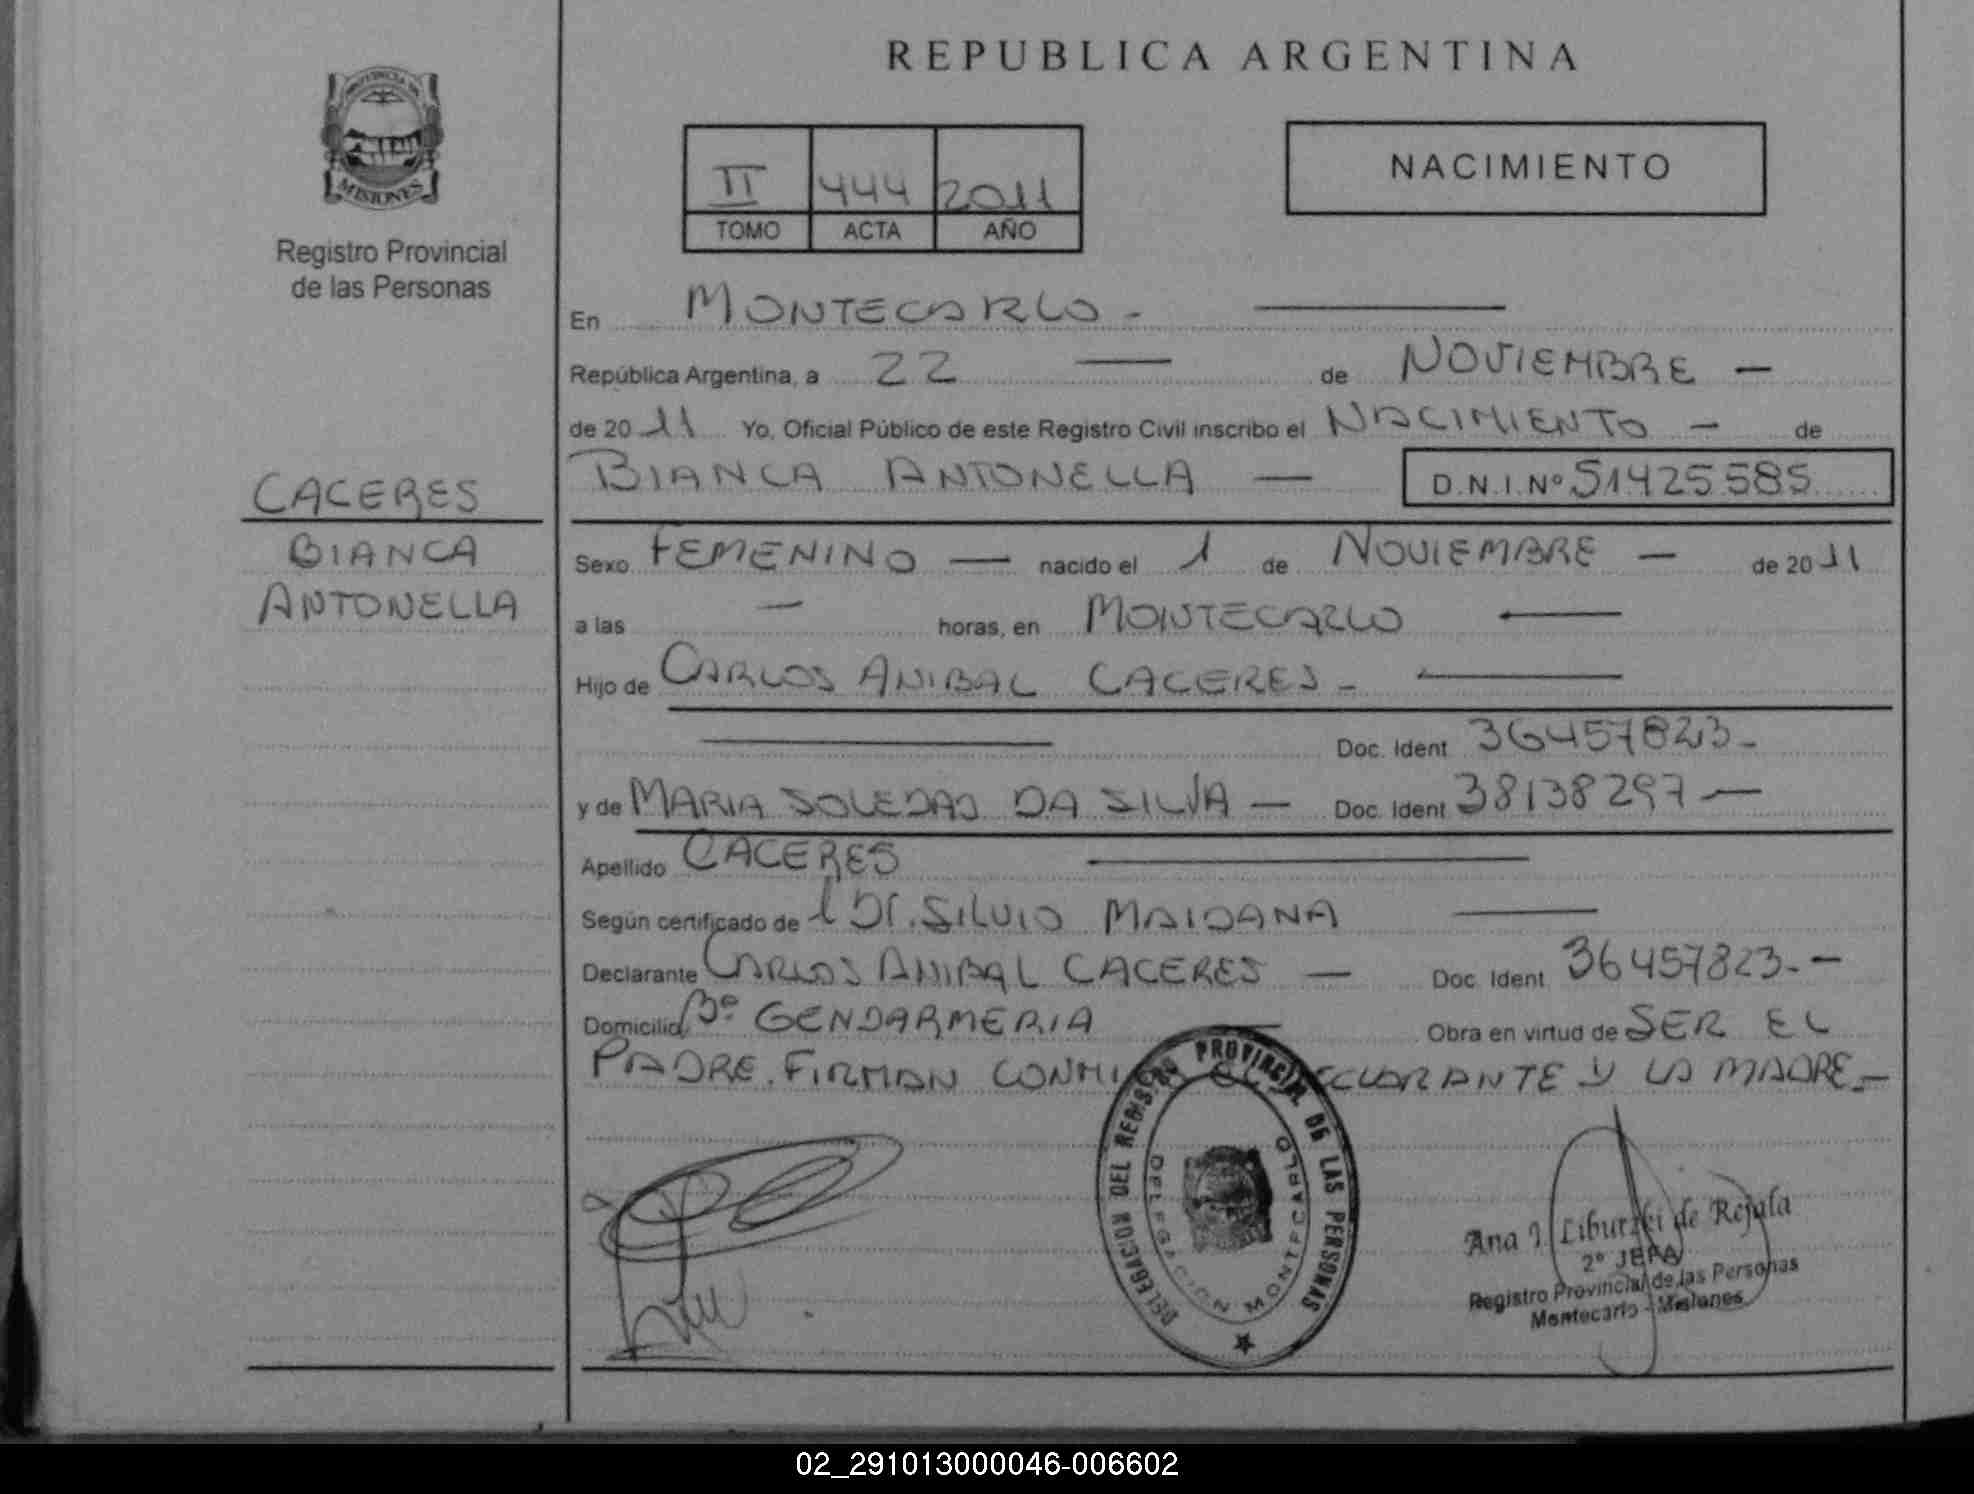 REPUBLICA ARGENTINA
PROVINCIA DE
MISIONES
Registro Provincial
de las Personas
II 444 2011
TOMO ACTA AÑO
NACIMIENTO
En MONTECARLO -
República Argentina, a 22 de NOVIEMBRE -
de 2011 Yo, Oficial Público de este Registro Civil inscribo el NACIMIENTO - de
BIANCA ANTONELLA - D.N.I.Nº 51425585
CACERES
BIANCA
ANTONELLA
Sexo FEMENINO - nacido el 1 de NOVIEMBRE - de 2011
a las - horas, en MONTECARLO
Hijo de CARLOS ANIBAL CACERES -
Doc. Ident 36457823-
y de MARIA SOLEDAD DA SILVA - Doc. Ident 38138297-
Apellido CACERES
Según certificado de l Dr. SILVIO MAIDANA
Declarante CARLOS ANIBAL CACERES - Doc. Ident 36457823.-
Domicilio Bº GENDARMERIA Obra en virtud de SER EL
PADRE. FIRMAN CONMIGO EL DECLARANTE Y LA MADRE.-
DELEGACION DEL REGISTRO PROVINCIAL DE LAS PERSONAS
DELEGACION MONTECARLO
Ana J. Liburzki de Rejala
2º JEFA
Registro Provincial de las Personas
Montecarlo - Misiones
02_291013000046-006602